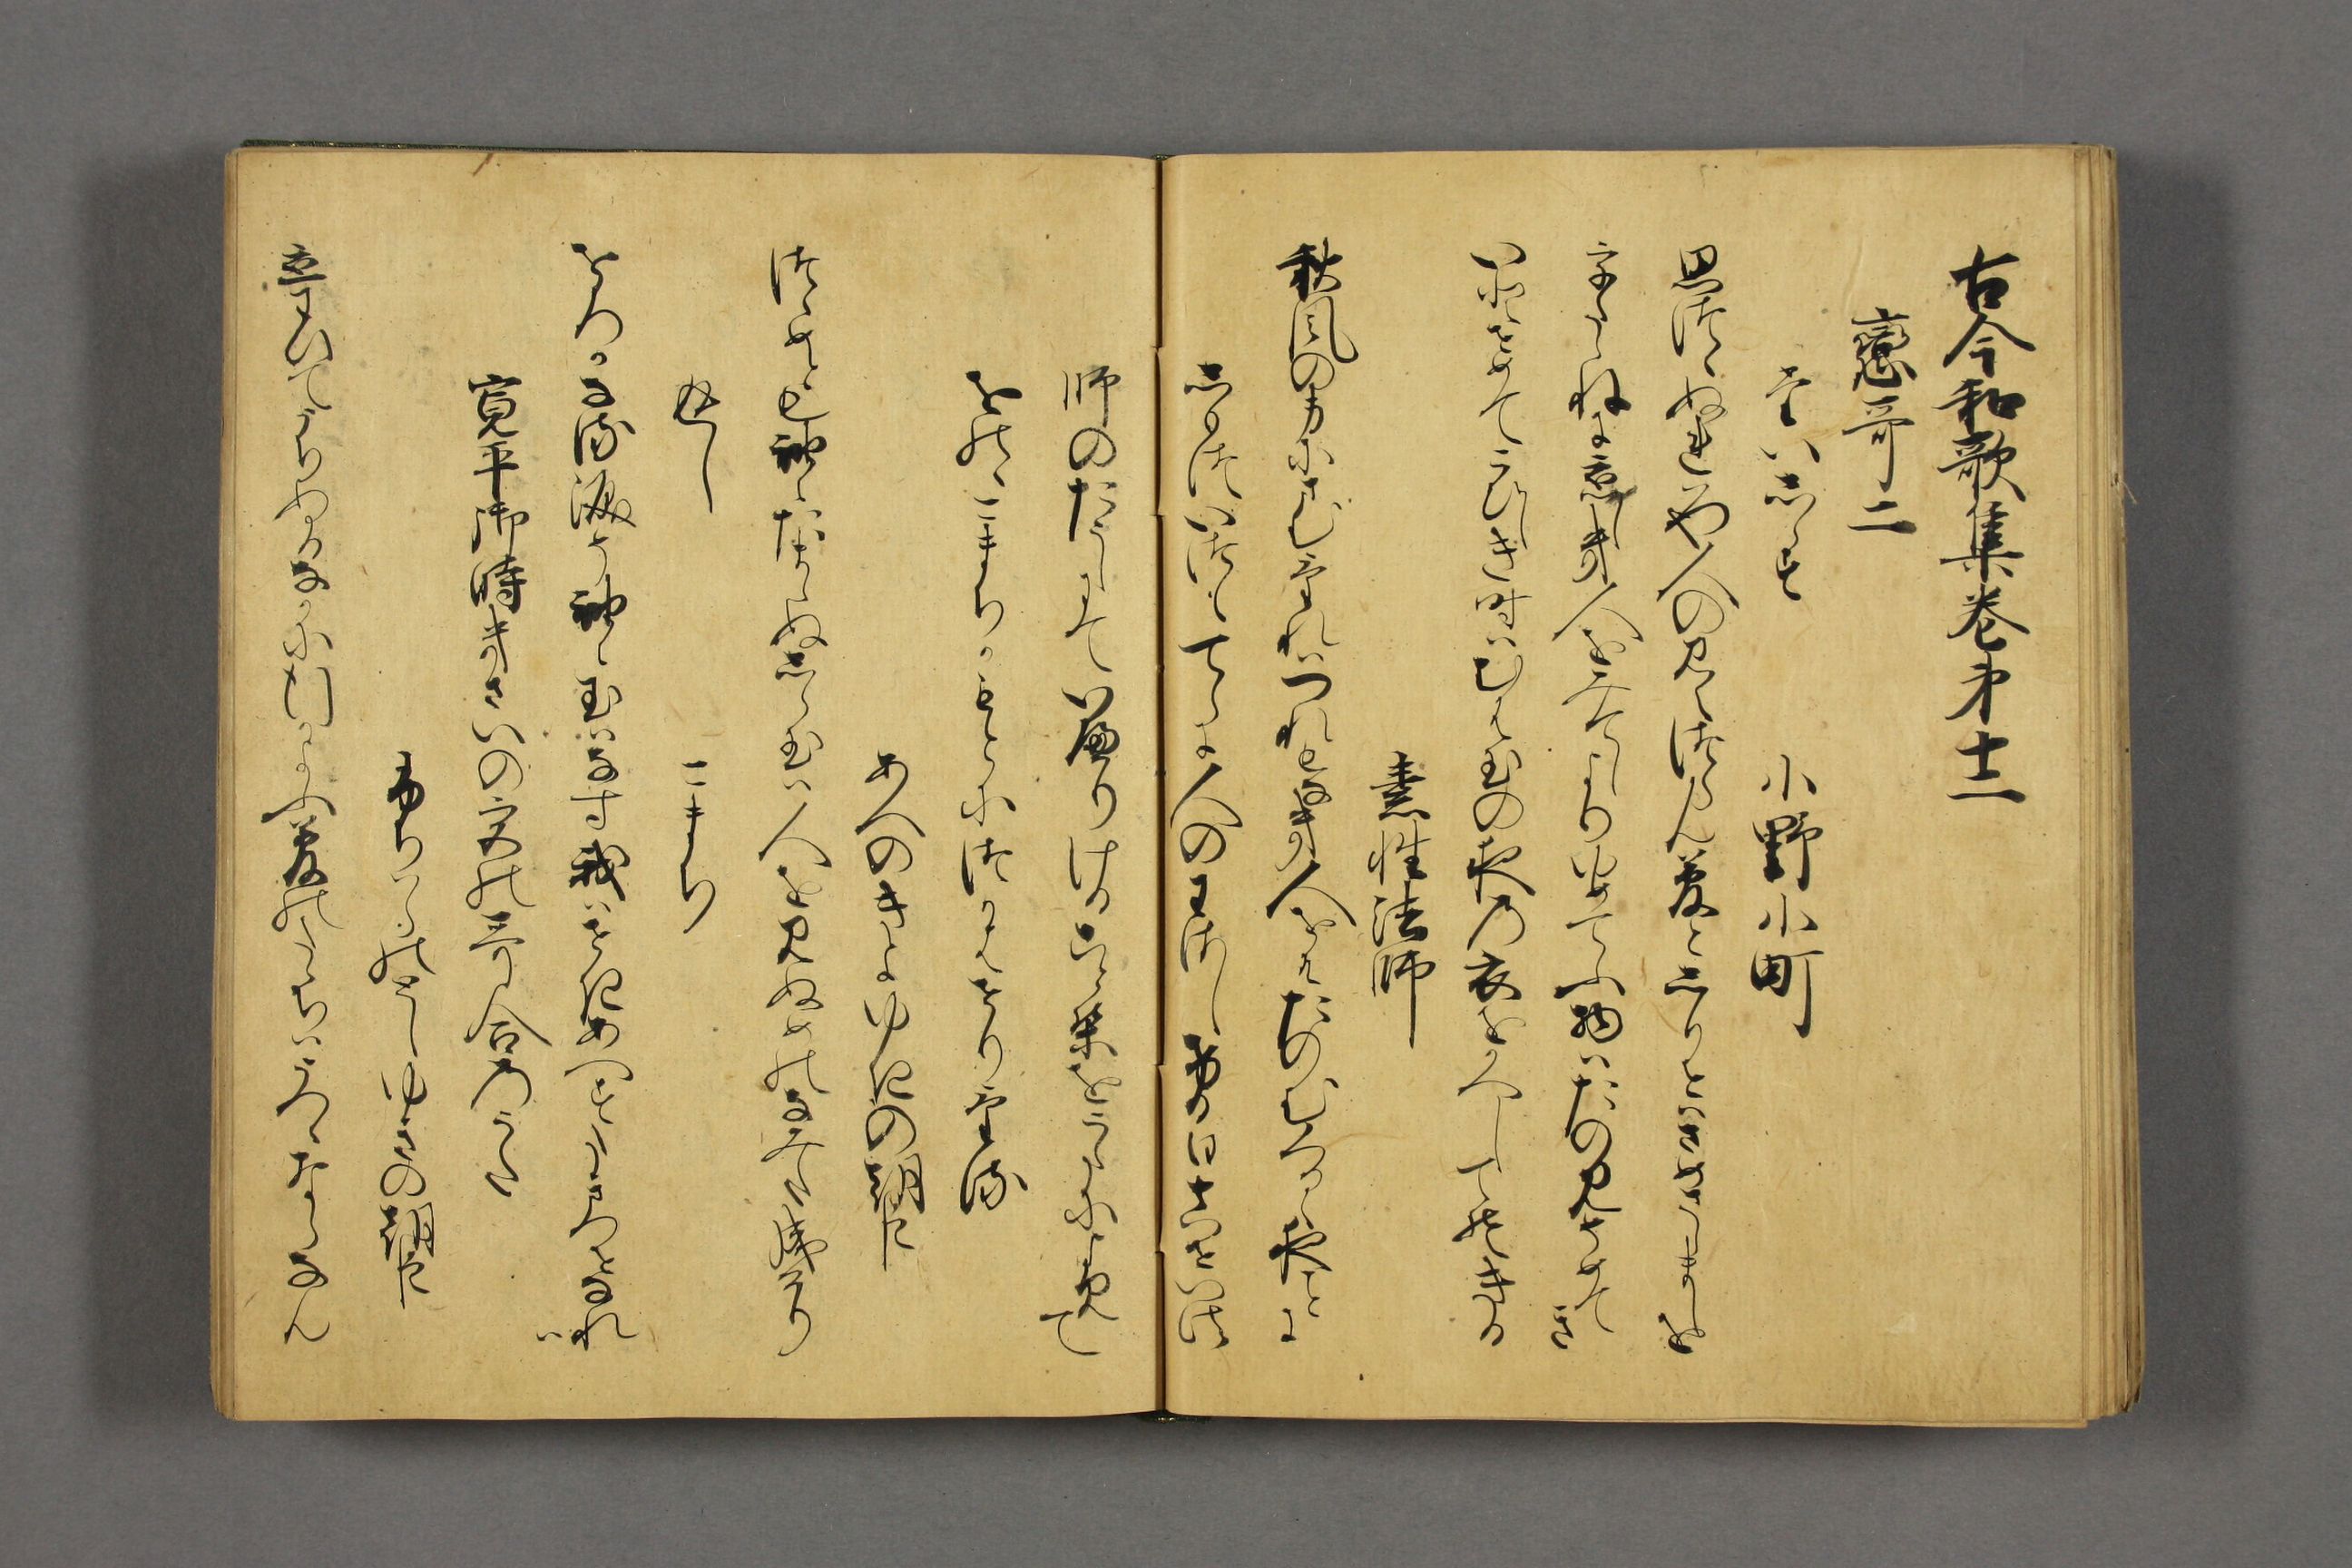 古今和歌集巻第十二
戀哥二
たいしらす
小野小町
思つゝぬれはや人の見えつらん夢としりせはさめさらましを
うたゝねに恋しき人をみてしより夢てふ物はたのみそめてき
いとせめてこひしき時はむは玉の夜の衣をかへしてそきる
素性法師
秋風の身にさむけれはつれもなき人をそたのむくるゝ夜ことに
しもついつもてらに人のわさしける日真せい法
師のたうしにていへりけることはを哥によみて
をのゝこまちかもとにつかはせりける
あへのきよゆきの朝臣
つゝめとも袖にたまらぬしら玉は人を見ぬめの涙なりけり
返し
こまち
をろかなる涙そ袖に玉はなす我はせきあへすたきつせなれは
寛平御時きさいの宮の哥合のうた
ふちはらのとしゆきの朝臣
恋わひてうちぬる中に行かよふ夢のたゝちはうつゝならなん